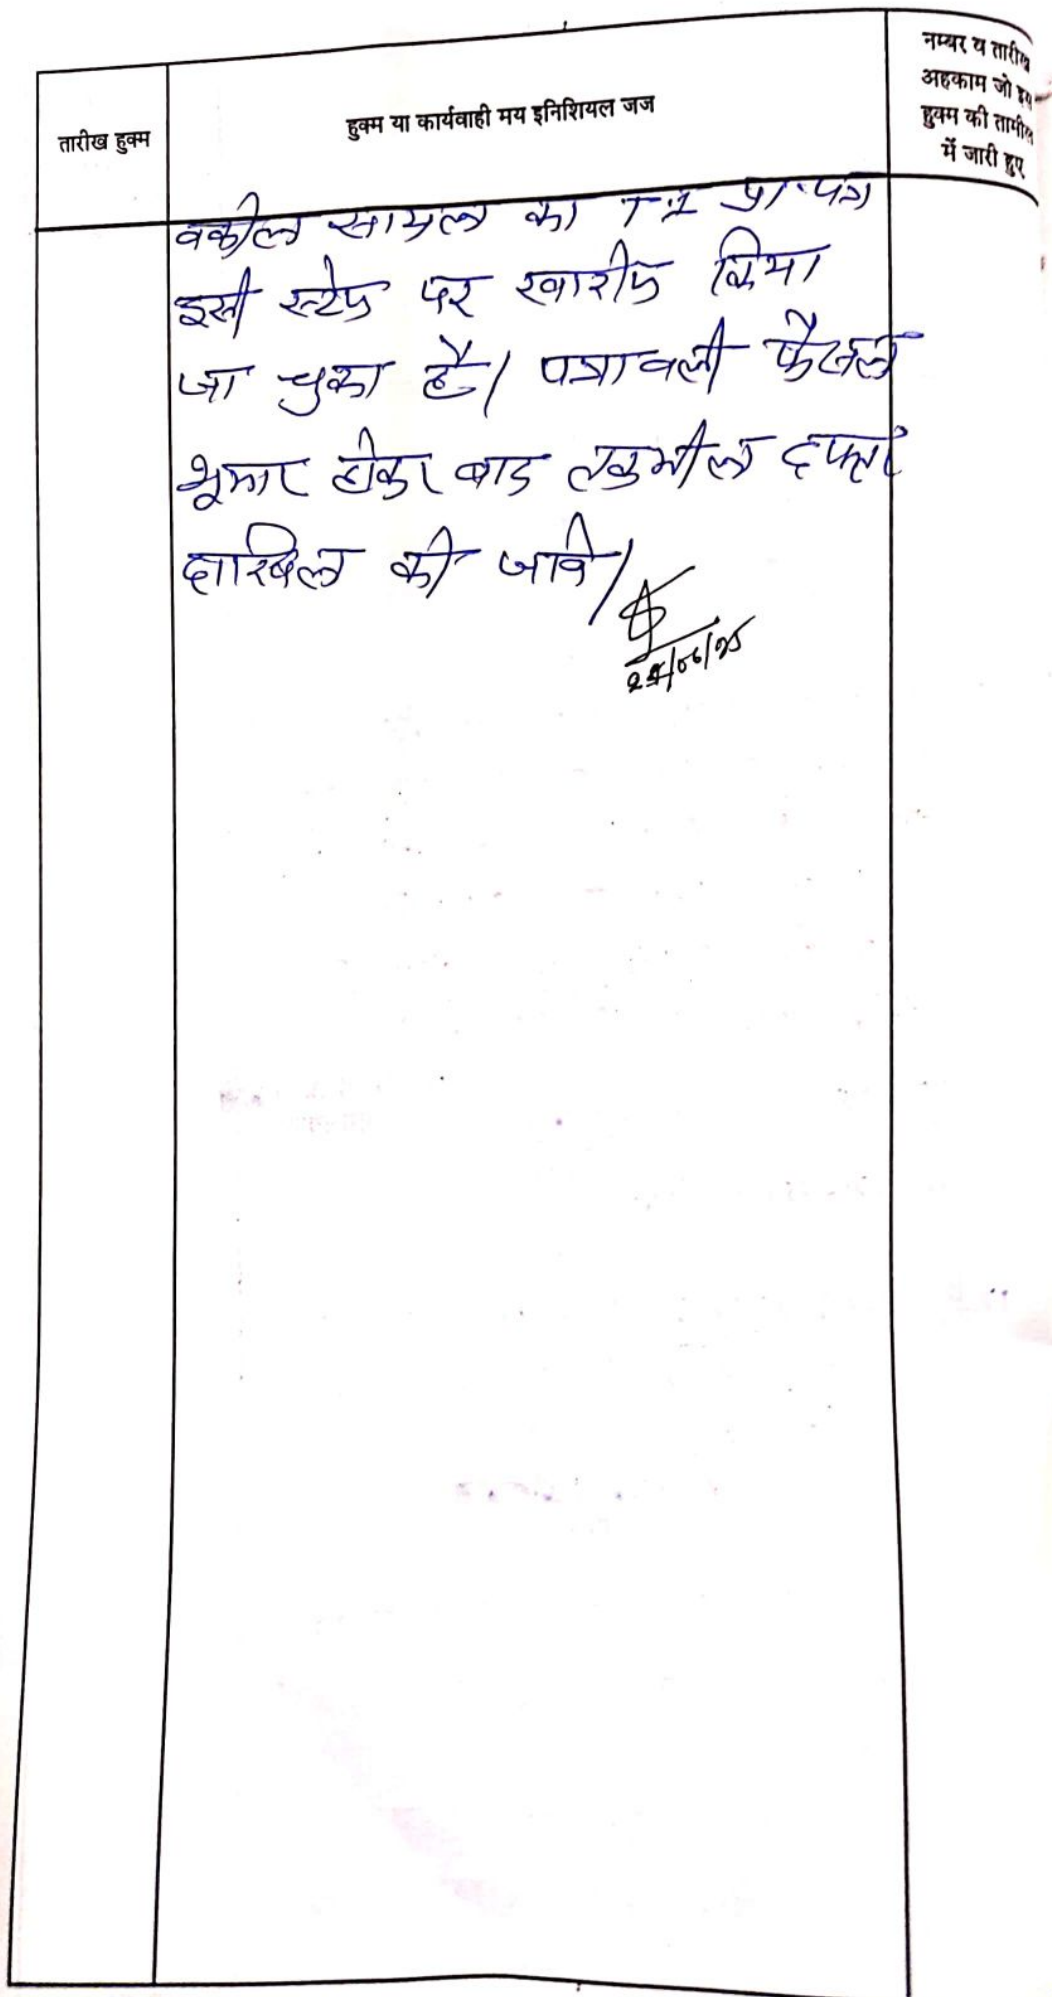 तारीख हुक्म
हुक्म या कार्यवाही मय इनिशियल जज
नम्बर व तारीख
अहकाम जो इस
हुक्म की तामील
में जारी हुए
वकील सायल का T.I प्रा.पत्र
इसी स्टेज पर खारीज किया
जा चुका है। पत्रावली फैसल
शुमार होकर बाद तकमील दफ्तर
दाखिल की जावे।